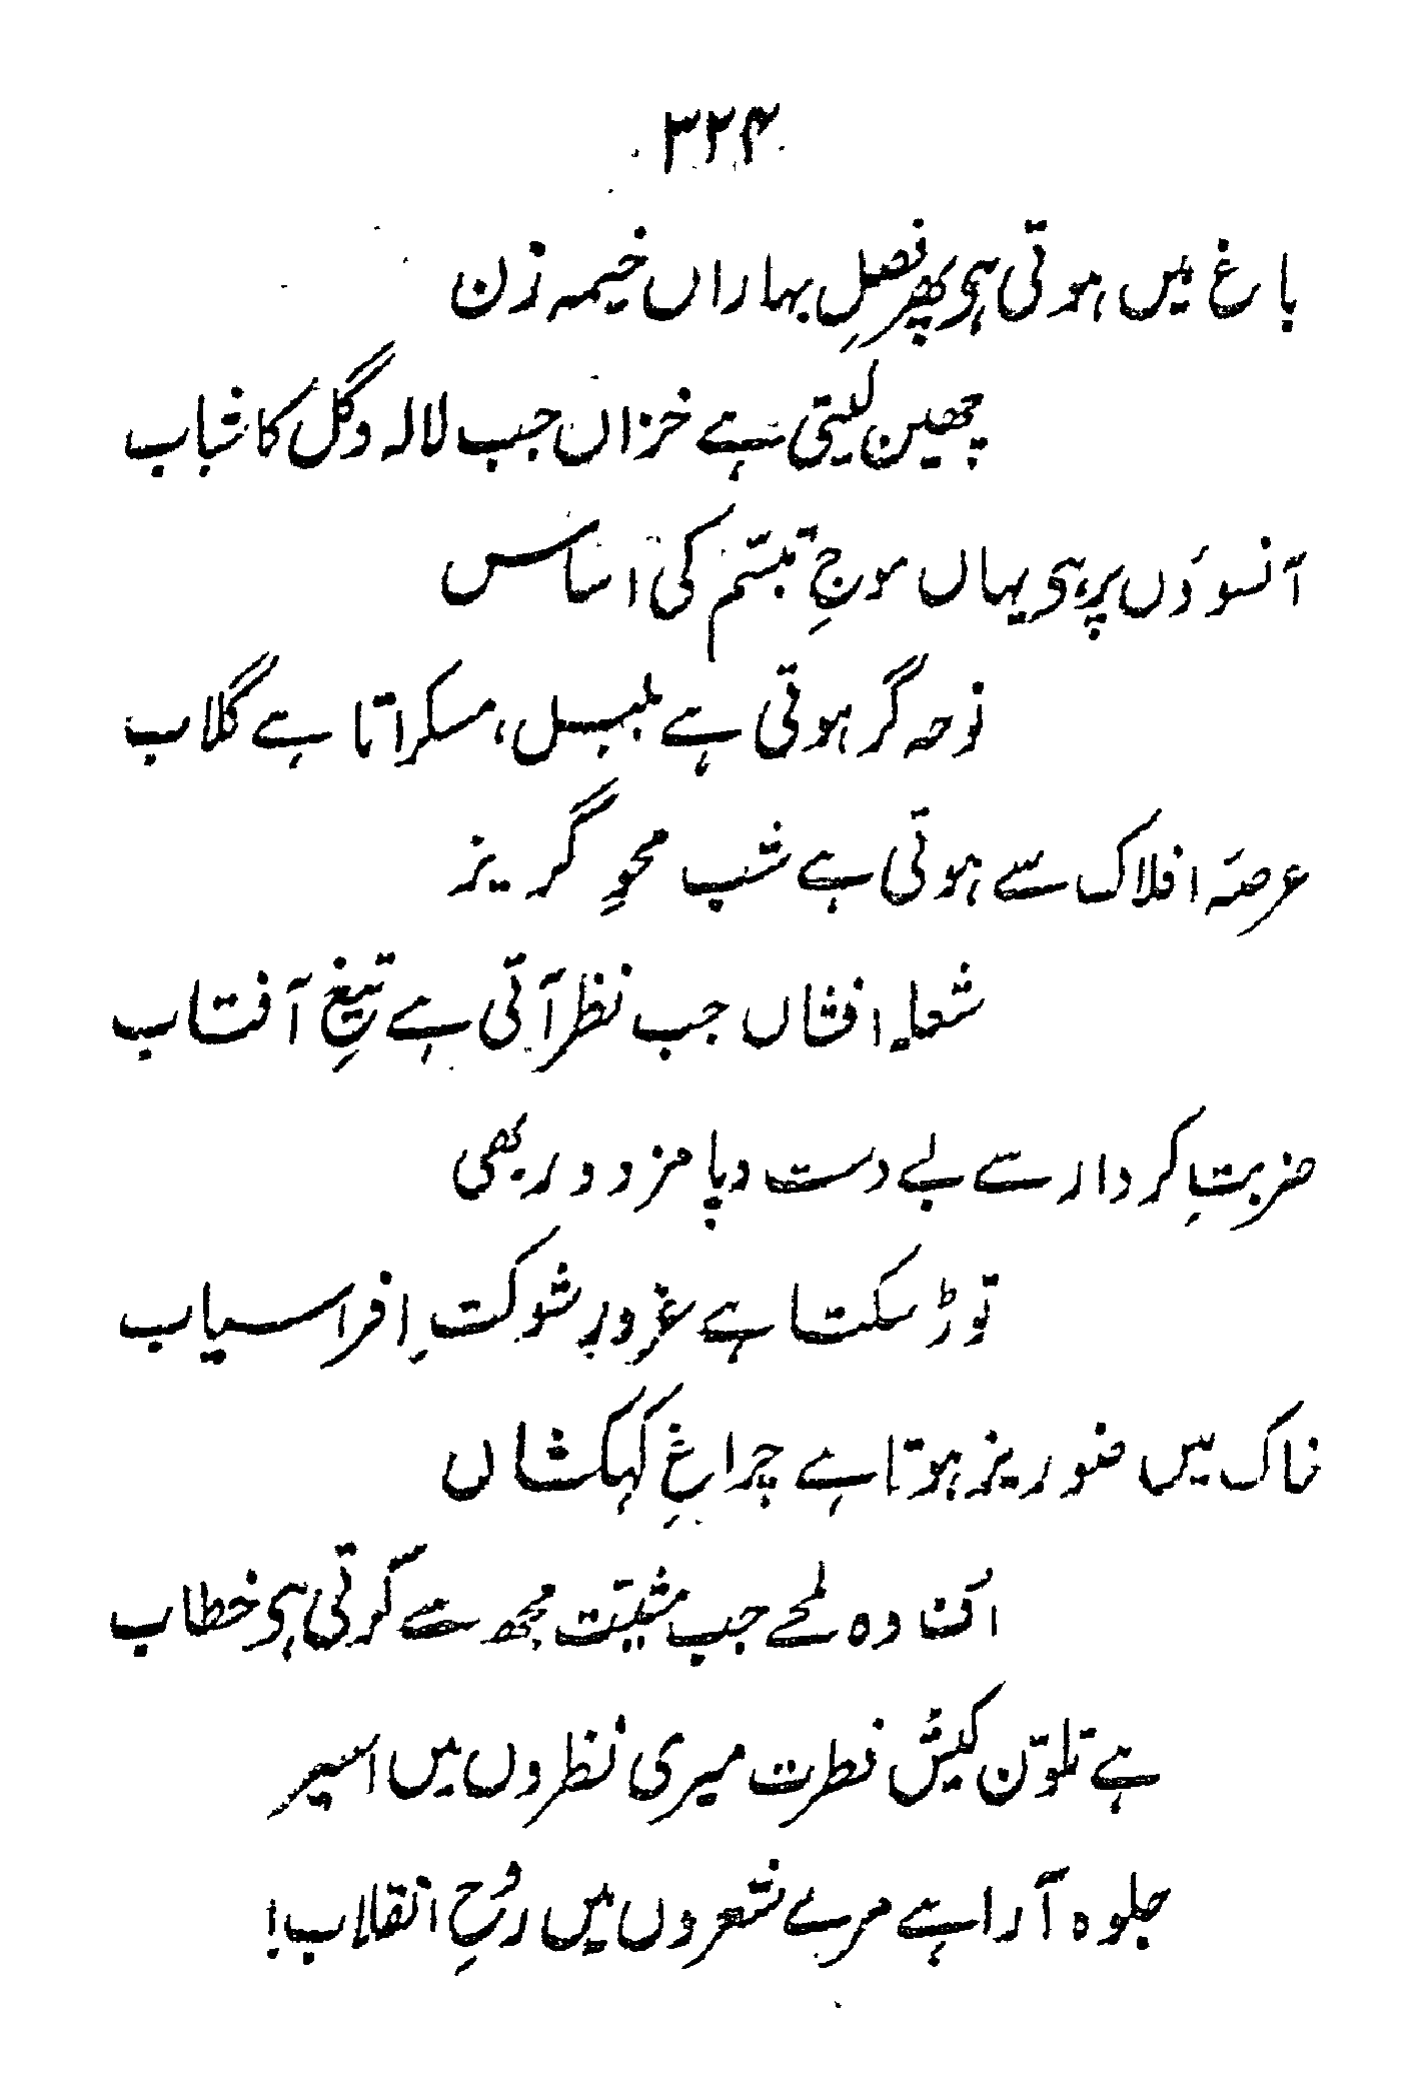 ۳۲۴
باغ میں ہوتی ہی پھر فصلِ بہاراں خیمہ زن
چھین لیتی ہے خزاں جب لالہ و گل کا شباب
آنسوؤں پر ہی یہاں موجِ تبسّم کی اساس
نوحہ گر ہوتی ہے بلبل، مسکراتا ہے گلاب
عرصۂ افلاک سے ہوتی ہے شب محوِ گریز
شعلہ افشاں جب نظر آتی ہے تیغِ آفتاب
ضربتِ کردار سے بے دست و پا مزدور بھی
توڑ سکتا ہے غرورِ شوکتِ افراسیاب
خاک میں ضو ریز ہوتا ہے چراغِ کہکشاں
اُف وہ لمحے جب مشیّت مجھ سے کرتی ہی خطاب
ہے تلوّن کیش فطرت میری نظروں میں اسیر
جلوہ آرا ہے مرے شعروں میں رُوحِ انقلاب!